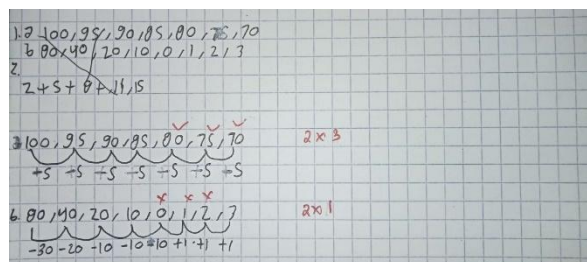 1. a 100, 95, 90, 85, 80, 75, 70
b 80, 40, 20, 10, 0, 1, 2, 3
2.
2+5+8+11, 15
a 100, 95, 90, 85, 80, 75, 70 2x3
÷5 ÷5 ÷5 ÷5 ÷5 ÷5 ÷5
b. 80, 40, 20, 10, 0, 1, 2, 3 2x1
-30 -20 -10 -10 -10 +1 +1 +1